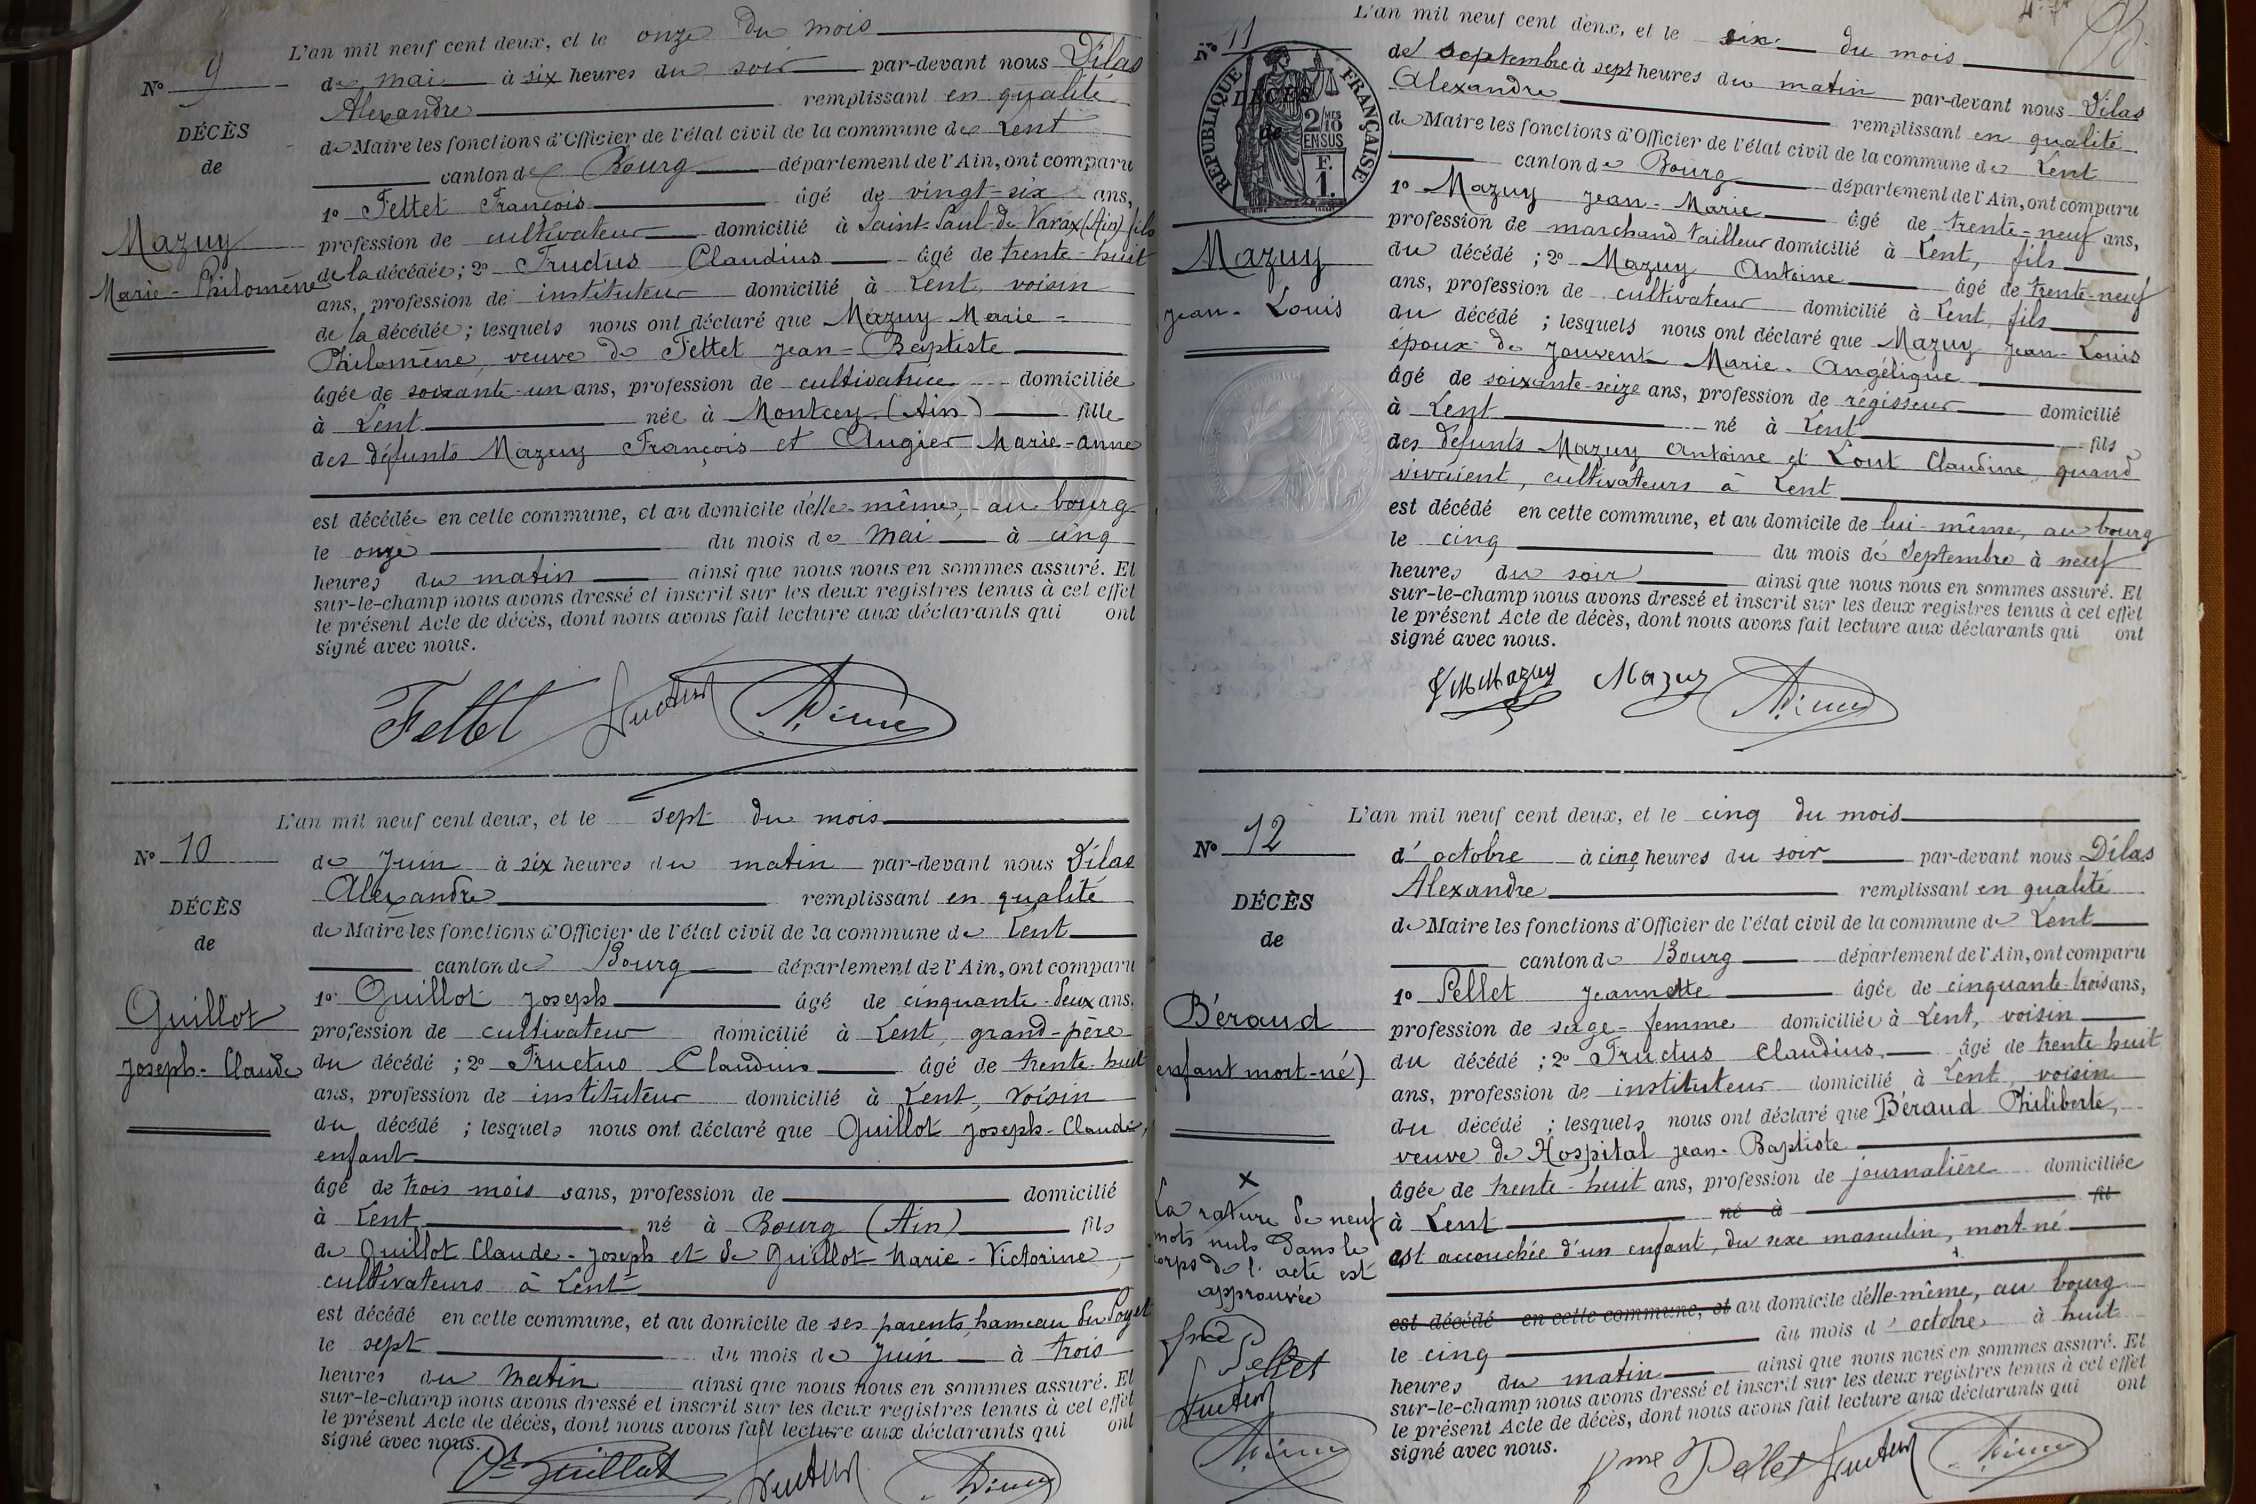 L'an mil neuf cent deux, et le onze du mois
N° 9
de mai à six heures du soir par-devant nous Dilas
Alexandre remplissant en qualité
DÉCÈS
de Maire les fonctions d'Officier de l'état civil de la commune de Lent
de
canton de Bourg département de l'Ain, ont comparu
1° Fettet François âgé de vingt-six ans,
Mazuy
profession de cultivateur domicilié à Saint-Paul-de-Varax (Ain) fils
Marie-Philomène
de la décédée ; 2° Fructus Claudius âgé de trente-huit
ans, profession de instituteur domicilié à Lent, voisin
de la décédée ; lesquels nous ont déclaré que Mazuy Marie-
Philomène, veuve de Fettet Jean-Baptiste
âgée de soixante-un ans, profession de cultivatrice domiciliée
à Lent née à Montcey (Ain) fille
des défunts Mazuy François et Augier Marie-Anne
est décédée en cette commune, et au domicile d'elle-même, au bourg
le onze du mois de Mai à cinq
heures du matin ainsi que nous nous en sommes assuré. Et
sur-le-champ nous avons dressé et inscrit sur les deux registres tenus à cet effet
le présent Acte de décès, dont nous avons fait lecture aux déclarants qui ont
signé avec nous.
Fettet
L'an mil neuf cent deux, et le sept du mois
N° 10
de Juin à six heures du matin par-devant nous Dilas
Alexandre remplissant en qualité
DÉCÈS
de Maire les fonctions d'Officier de l'état civil de la commune de Lent
de
canton de Bourg département de l'Ain, ont comparu
1° Guillot Joseph âgé de cinquante-deux ans,
Guillot
profession de cultivateur domicilié à Lent, grand-père
Joseph-Claude
du décédé ; 2° Fructus Claudius âgé de trente-huit
ans, profession de instituteur domicilié à Lent, voisin
du décédé ; lesquels nous ont déclaré que Guillot Joseph-Claude,
enfant
âgé de trois mois sans, profession de domicilié
à Lent né à Bourg (Ain) fils
de Guillot Claude-Joseph et de Guillot Marie-Victorine,
cultivateurs à Lent
est décédé en cette commune, et au domicile de ses parents, hameau du Poyet
le sept du mois de Juin à trois
heures du matin ainsi que nous nous en sommes assuré. Et
sur-le-champ nous avons dressé et inscrit sur les deux registres tenus à cet effet
le présent Acte de décès, dont nous avons fait lecture aux déclarants qui ont
signé avec nous.
Guillot
L'an mil neuf cent deux, et le six du mois
N° 11
de septembre à sept heures du matin par-devant nous Dilas
Alexandre remplissant en qualité
RÉPUBLIQUE FRANÇAISE
2/10 MES
EN SUS
F.
1.
DÉCÈS
de Maire les fonctions d'Officier de l'état civil de la commune de Lent
de
canton de Bourg département de l'Ain, ont comparu
1° Mazuy Jean-Marie âgé de trente-neuf ans,
profession de marchand tailleur domicilié à Lent, fils
Mazuy
du décédé ; 2° Mazuy Antoine âgé de trente-neuf
Jean-Louis
ans, profession de cultivateur domicilié à Lent, fils
du décédé ; lesquels nous ont déclaré que Mazuy Jean-Louis
époux de Jouvent Marie-Angélique
âgé de soixante-seize ans, profession de régisseur domicilié
à Lent né à Lent fils
des défunts Mazuy Antoine et Lont Claudine, quand
vivaient, cultivateurs à Lent
est décédé en cette commune, et au domicile de lui-même, au bourg
le cinq du mois de Septembre à neuf
heures du soir ainsi que nous nous en sommes assuré. Et
sur-le-champ nous avons dressé et inscrit sur les deux registres tenus à cet effet
le présent Acte de décès, dont nous avons fait lecture aux déclarants qui ont
signé avec nous.
JM Mazuy Mazuy
L'an mil neuf cent deux, et le cinq du mois
N° 12
d'octobre à cinq heures du soir par-devant nous Dilas
Alexandre remplissant en qualité
DÉCÈS
de Maire les fonctions d'Officier de l'état civil de la commune de Lent
de
canton de Bourg département de l'Ain, ont comparu
1° Pellet Jeannette âgée de cinquante-trois ans,
Béraud
profession de sage-femme domiciliée à Lent, voisin
enfant mort-né)
du décédé ; 2° Fructus Claudius, âgé de trente-huit
ans, profession de instituteur domicilié à Lent, voisin
du décédé ; lesquels nous ont déclaré que Béraud Philiberte,
veuve de Hospital Jean-Baptiste
âgée de trente-huit ans, profession de journalière domiciliée
à Lent né à fil
est accouchée d'un enfant, du sexe masculin, mort-né
x
La rature de neuf
mots nuls dans le
corps de l'acte est
approuvée
est décédé en cette commune, et au domicile d'elle-même, au bourg
le cinq du mois d'octobre à huit
heures du matin ainsi que nous nous en sommes assuré. Et
sur-le-champ nous avons dressé et inscrit sur les deux registres tenus à cet effet
le présent Acte de décès, dont nous avons fait lecture aux déclarants qui ont
signé avec nous.
fme Pellet
fme Pellet